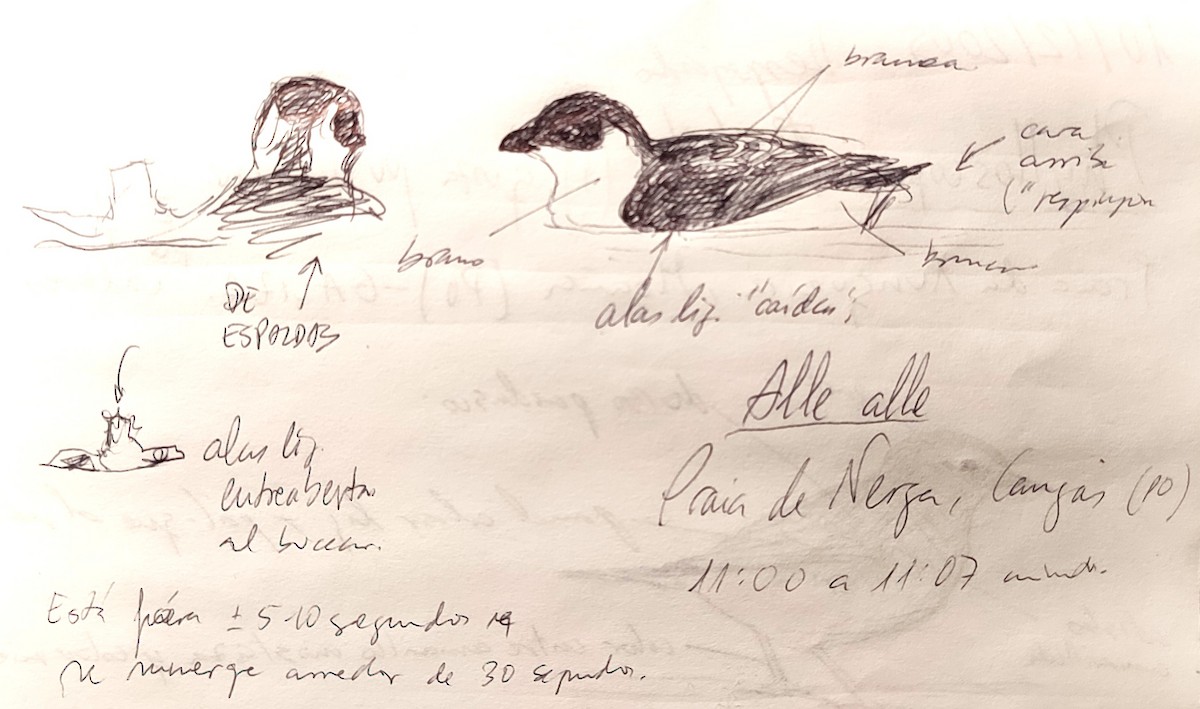 branca
cara
arriba
("respingón
branco
branco
DE
ESPALDAS
alas lig. "caídas",
Alle alle
alas lig.
entreabertas
al bucear.
Praia de Nerga, Cangas (PO)
11:00 a 11:07
Está fóra ± 5-10 segundos e
se sumerge arredor de 30 segundos.